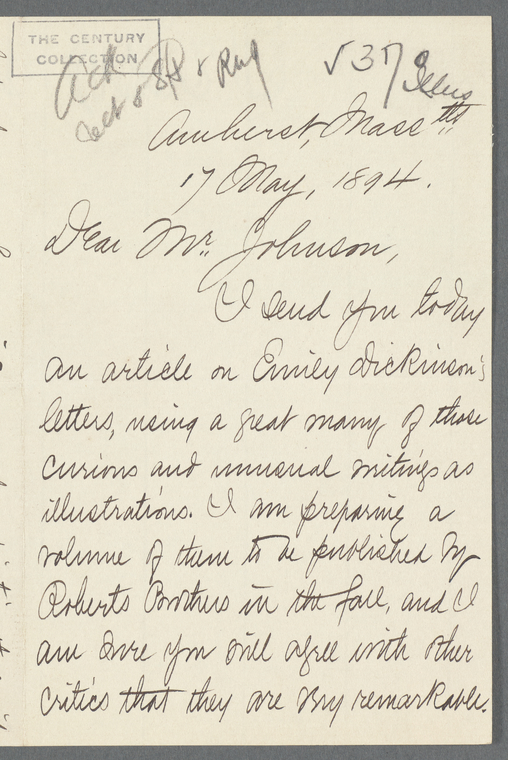 THE CENTURY
COLLECTION
Ack
& Rug
√ 37
Amherst, Massts
17 May, 1894.
Dear Mr. Johnson,
I send you today
an article on Emily Dickinson's
letters, using a great many of those
curious and unusual writings as
illustrations. I am preparing a
volume of them to be published by
Roberts Brothers in the fall, and I
am sure you will agree with other
critics that they are very remarkable.